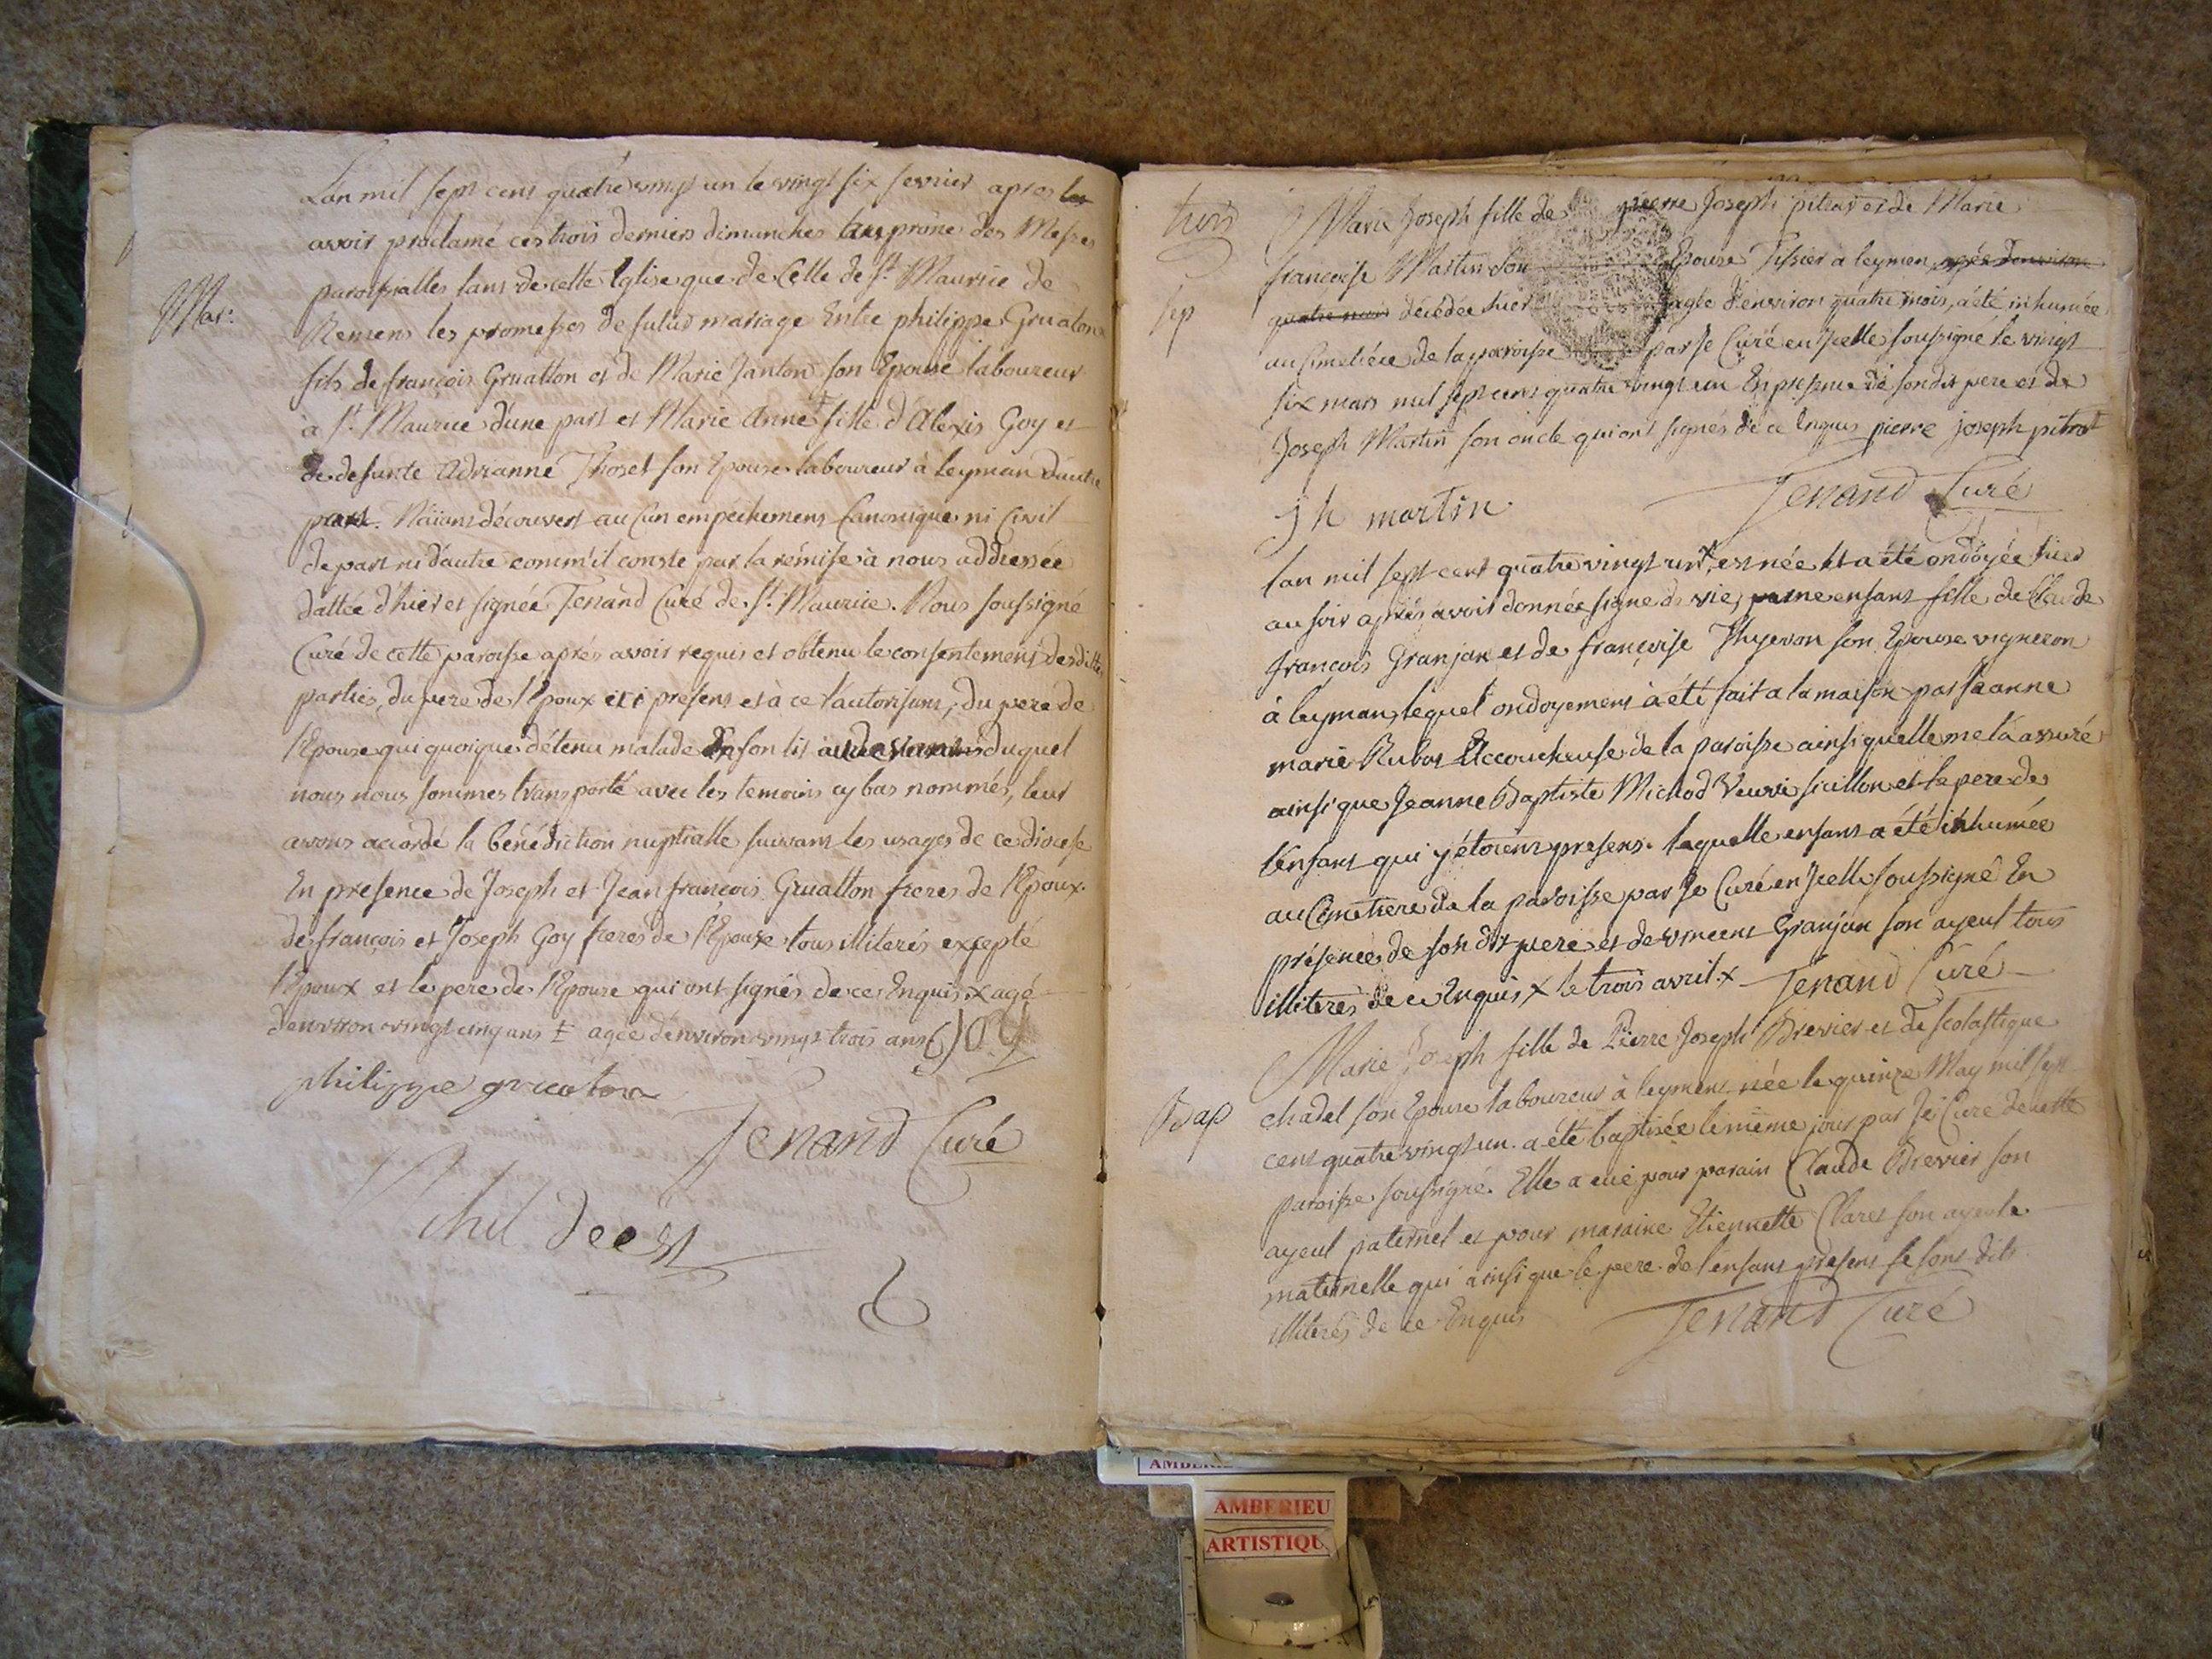 Lan mil sept cent quatre vingt un le vingt six fevrier apres les
avoir proclamé ces trois derniers dimanches aux prône des Messes
paroissialles tant de cette Eglise que de Celle de St. Maurice de
Mar:
Remens les promesses de futur mariage Entre philippe Gruaton
fils de françois Gruatton et de Marie Janton son Epouse laboureur
à St. Maurice d'une part et Marie Anne ‡ fille d'Alexis Goy et
de defunte Adrianne Thoset son Epouse laboureur à leyman d'autre
part. N'aiant découvert aucun empêchement Canonique ni Civil
de part ni d'autre comm'il conste par la rémise à nous addressée
dattée d'hier et signée Tenand Curé de St. Maurice. Nous soussigné
Curé de cette paroisse aprés avoir requis et obtenu le consentement desdittes
parties, du pere de l'Epoux ici present et à ce l'autorisant, du pere de
l'Epouse qui quoique détenu malade En son lit duquel
nous nous sommes transporté avec les temoins cy bas nommés, leur
avons accordé la bénédiction nuptialle suivant les usages de ce diocese
En presence de Joseph et Jean françois Gruatton freres de l'Epoux.
de françois et Joseph Goy freres de l'Epouse tous illiterés excepté
l'Epoux et le pere de l'Epouse qui ont signés de ce Enquis. x agé
d'environ vingt cinq ans ‡ agée d'environ vingt trois ans Goy
philippe gruaton
Tenand Curé
Nihil deest
trois
Marie Joseph fille de pierre Joseph pitrat et de Marie
francoise Martin son Epouse Tissier a leymen
Sep
quatre mois décédée hier agée d'environ quatre mois, a été inhumée
au Cimetiére de la paroisse par le Curé en jcelle soussigné le vingt
six mars mil sept cent quatre vingt un En presence de son dit pere et de
Joseph Martin son oncle qui ont signés de ce Enquis pierre joseph pitrat
J h martin
Tenand Curé
lan mil sept cent quatre vingt un x, est née et a été ondoyée hier
au soir aprés avoir donnée signe de vie, une enfant fille de Claude
francois Granjan et de françoise Thyevon son Epouse vigneron
à leyman, lequel ondoyement à été fait a la maison par jeanne
marie Rubat Accoucheuse de la paroisse ainsi quelle me l'a assuré
ainsi que Jeanne Baptiste Michod Veuve sicillon et le pere de
l'Enfant qui y étoient present. laquelle enfant a été inhumée
au Cimetiere de la paroisse par le Curé en jcelle soussigné En
présence de son dit pere et de vincent Granjan son ayeul tous
illiterés de ce Enquis x le trois avril. x Tenand Curé
Marie Joseph fille de Pierre Joseph Brevier et de scolastique
Bap
chadel son Epouse laboureur à leyment née le quinze May mil sept
cent quatre vingt un. a été baptisée le même jour par Je Curé de cette
paroisse soussigné. Elle a eué pour parain Claude Brevier son
ayeul paternel et pour maraine Etiennette Claret son ayeule
maternelle qui ainsi que le pere de l'enfant present se sont dits
illiterés de ce Enquis
Tenand Curé
AMBERIEU
ARTISTIQU